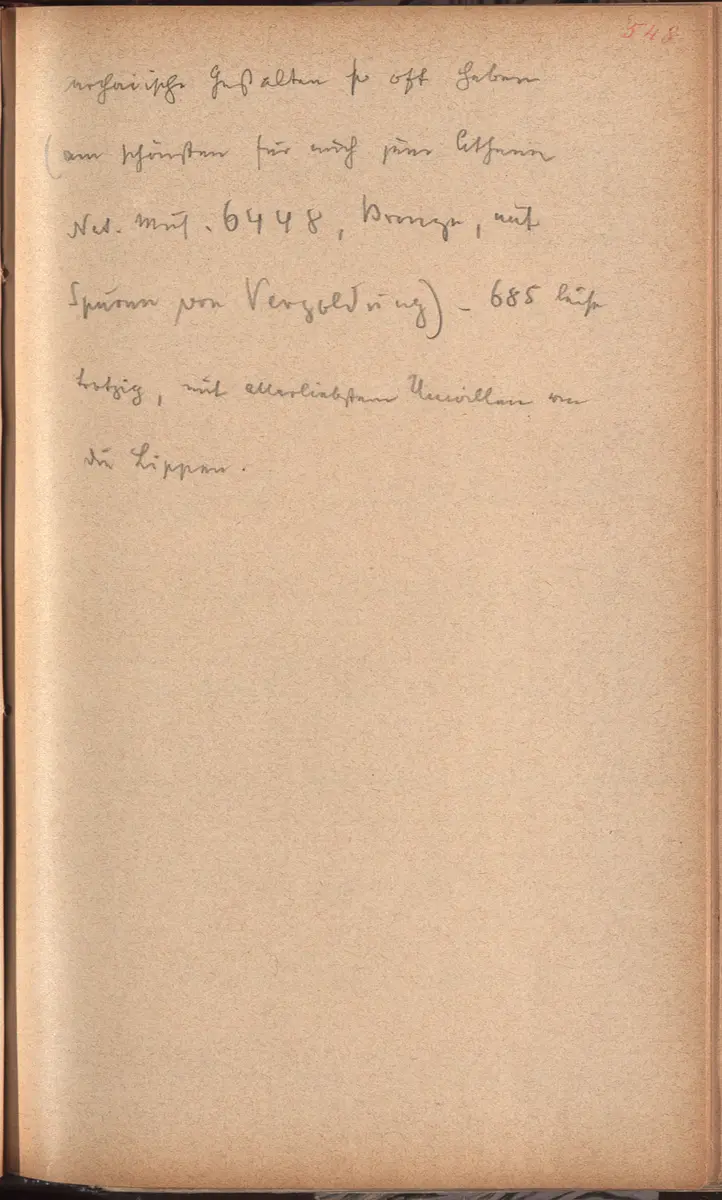 548
archaische Gestalten so oft haben
(am schönsten für mich jene Athena
Nat. Mus. 6448, Bronze, mit
Spuren von Vergoldung) – 685 leise
trotzig, mit allerliebstem Unwillen um
die Lippen.